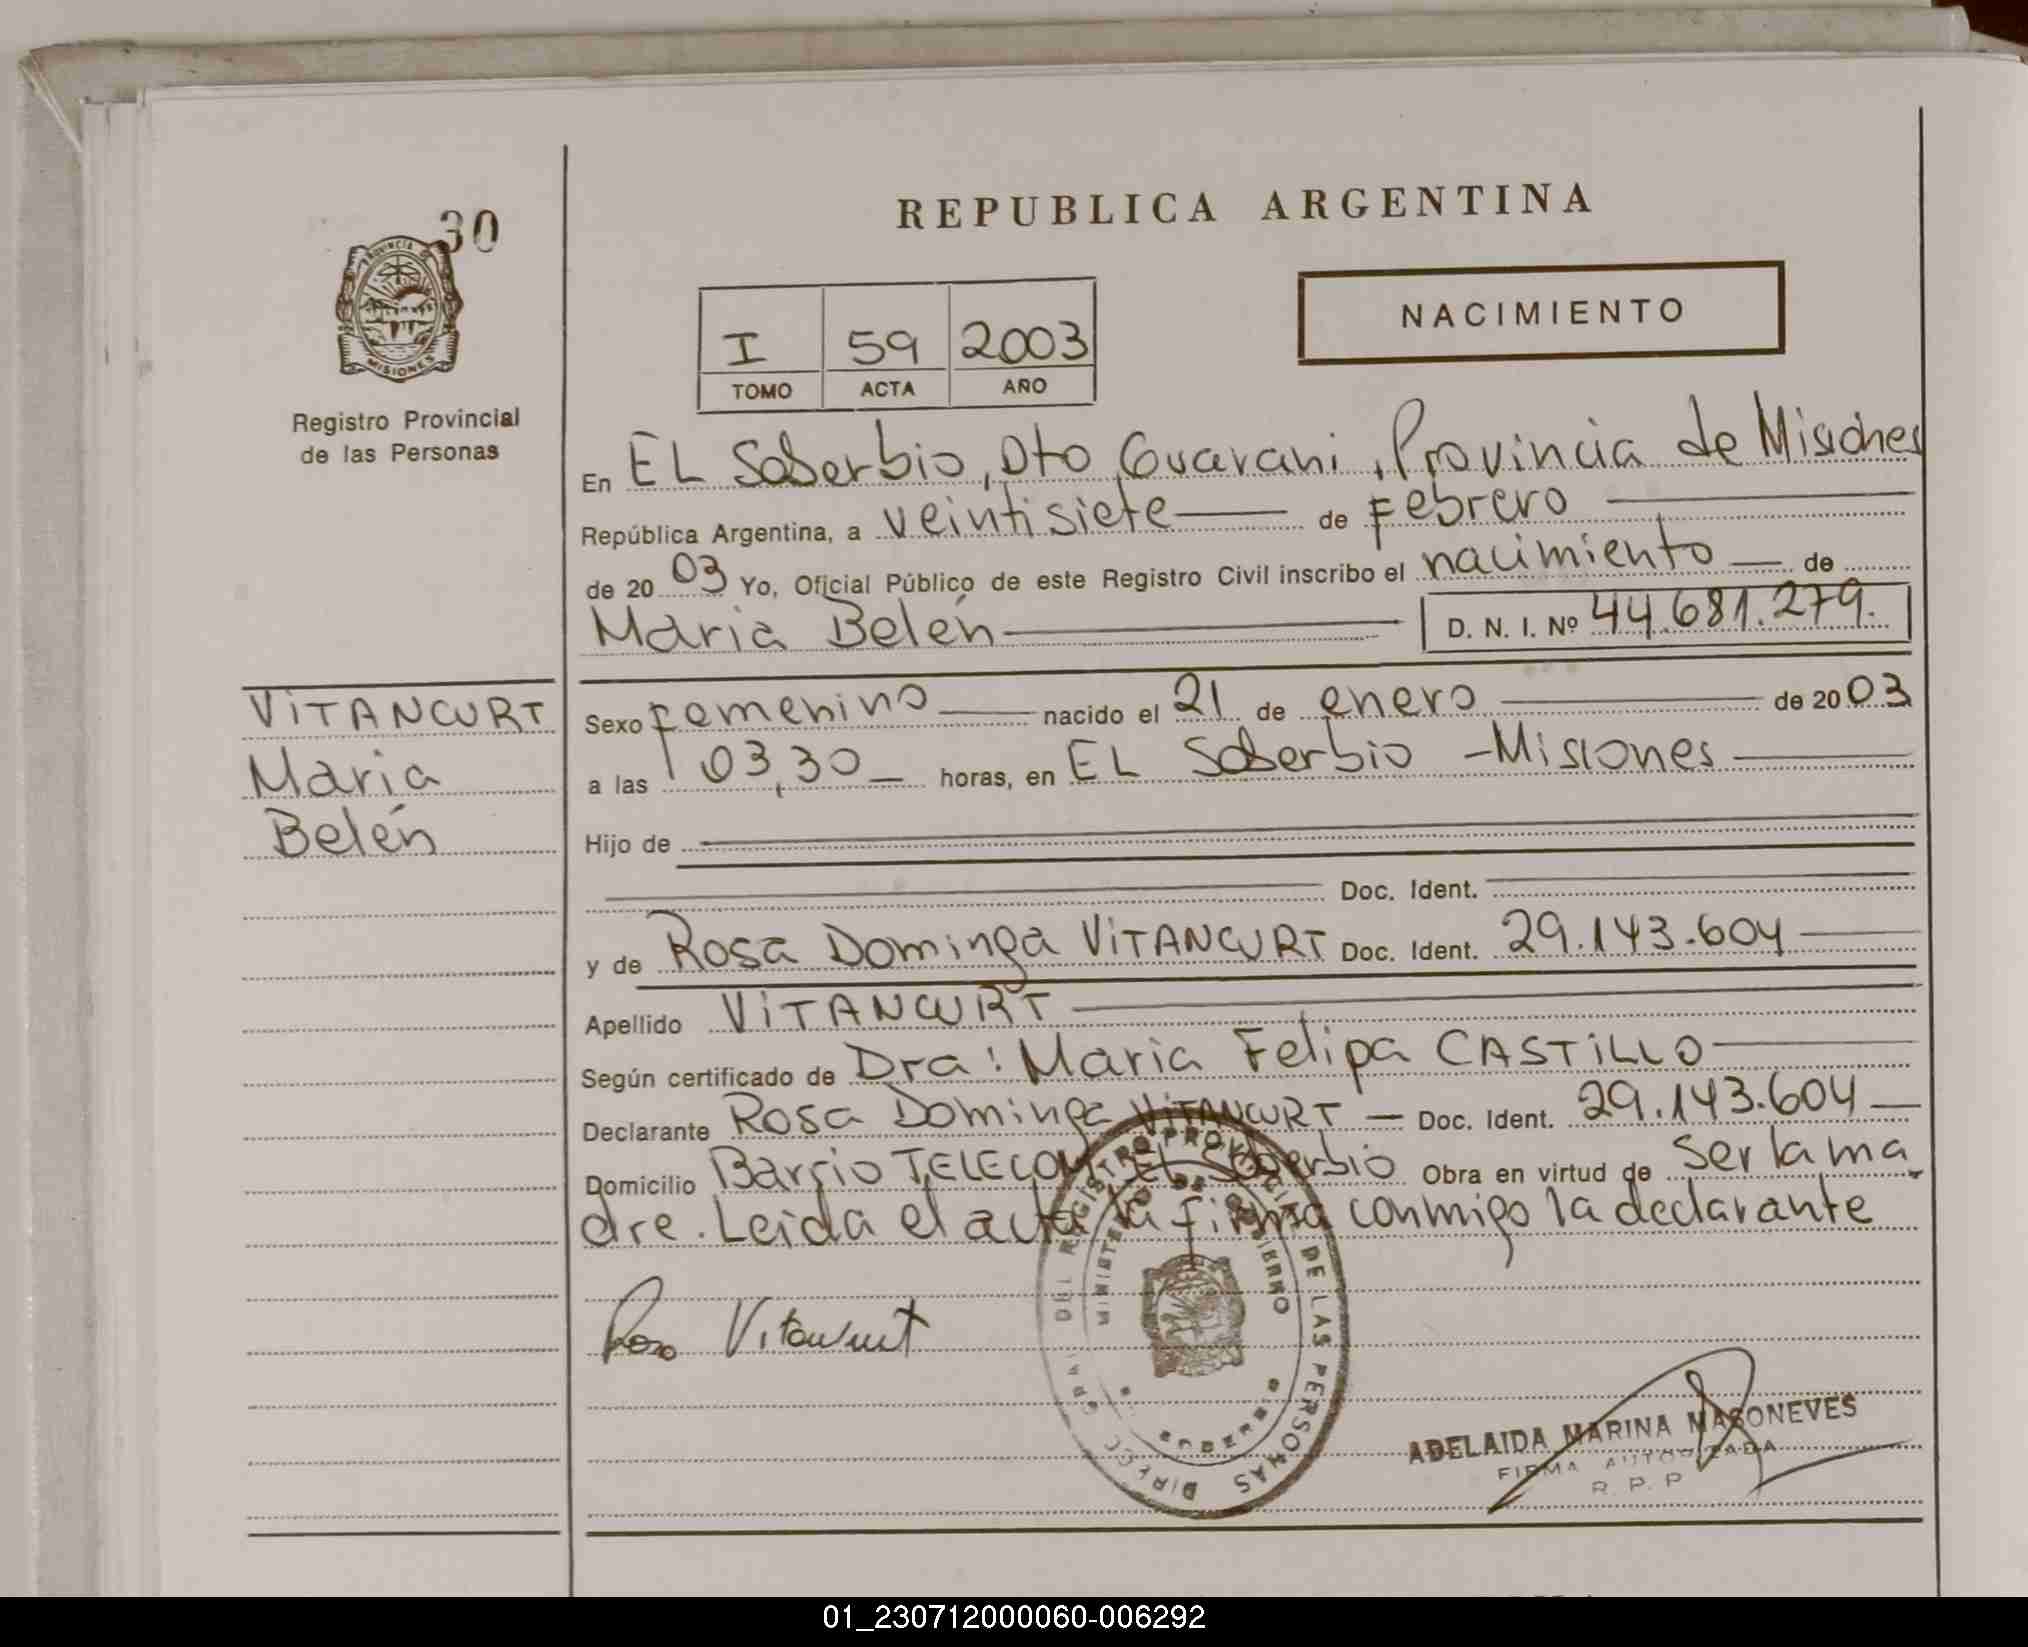 30
PROVINCIA DE
MISIONES
Registro Provincial
de las Personas
REPUBLICA ARGENTINA
NACIMIENTO
I 59 2003
TOMO ACTA AÑO
En EL Soberbio, Dto Guarani, Provincia de Misiones
República Argentina, a veintisiete de Febrero
de 2003 Yo, Oficial Público de este Registro Civil inscribo el nacimiento de
Maria Belén D. N. I. Nº 44.681.279.
VITANCURT
Maria
Belén
Sexo Femenino nacido el 21 de enero de 2003
a las 03,30 horas, en EL Soberbio - Misiones
Hijo de
Doc. Ident.
y de Rosa Dominga VITANCURT Doc. Ident. 29.143.604
Apellido VITANCURT
Según certificado de Dra: Maria Felipa CASTILLO
Declarante Rosa Dominga VITANCURT Doc. Ident. 29.143.604
Domicilio Barrio TELECOM, EL Soberbio Obra en virtud de ser la ma
dre. Leida el acta la firma conmigo la declarante
Rosa Vitancurt
DIRECC. GRAL. DEL REGISTRO PROVINCIAL DE LAS PERSONAS
MINISTERIO DE GOBIERNO
ADELAIDA MARINA MASONEVES
FIRMA AUTORIZADA
R. P. P
01_230712000060-006292